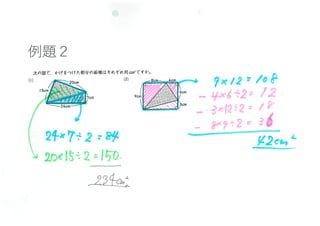 例題２
次の図で、かげをつけた部分の面積はそれぞれ何cm²ですか。
(1)
20cm
15cm
7cm
24cm
(2)
8cm
4cm
6cm
9cm
3cm
24×7÷2=84
20×15÷2=150.
234cm²
9×12=108
-4×6÷2=12
-3×12÷2=18
-8×9÷2=36
42cm²